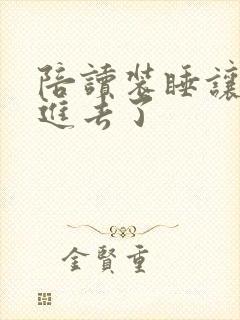 陪讀裝睡讓
進去了
金賢重